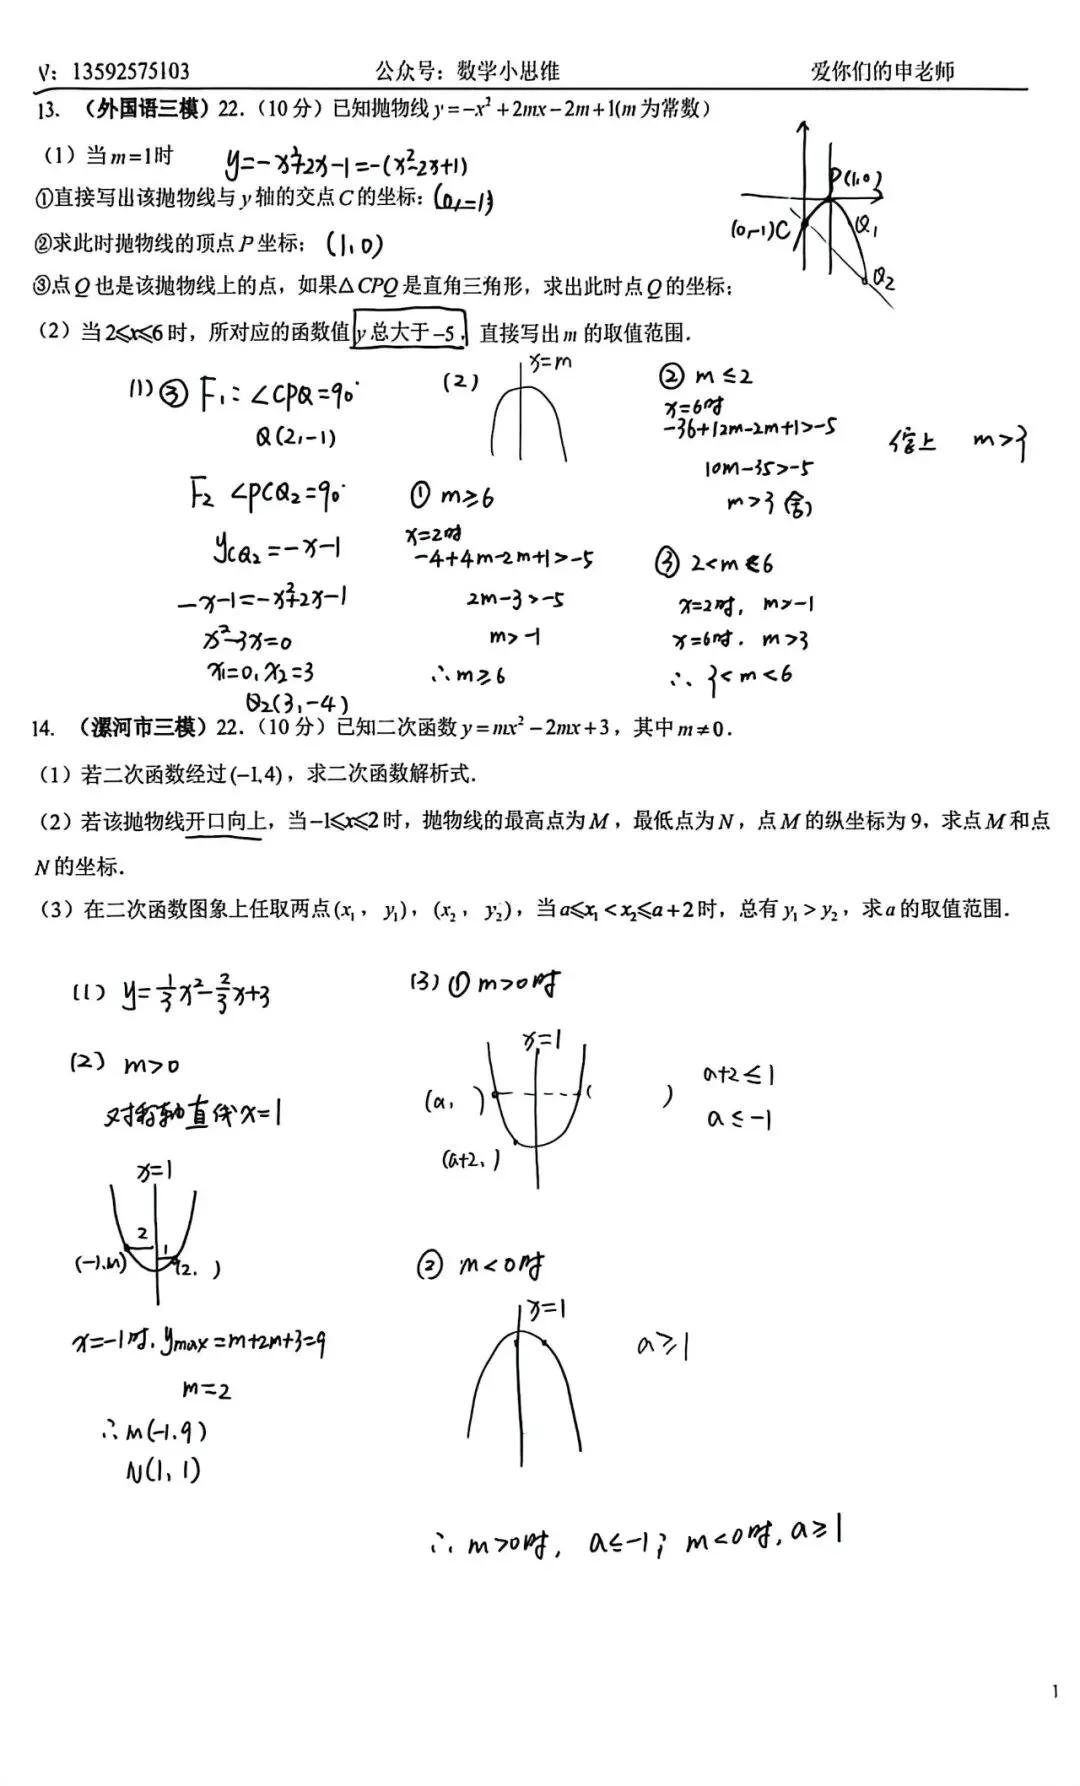 V: 13592575103 公众号: 数学小思维 爱你们的申老师
13. （外国语三模）22.（10分）已知抛物线 y=-x²+2mx-2m+1(m 为常数）
（1）当 m=1时 y=-x²+2x-1=-(x²-2x+1)
①直接写出该抛物线与 y 轴的交点 C 的坐标: (0,-1)
②求此时抛物线的顶点 P 坐标; (1,0)
③点 Q 也是该抛物线上的点，如果△CPQ 是直角三角形，求出此时点 Q 的坐标;
P(1,0)
(0,-1)C
Q₁
Q₂
（2）当 2≤x≤6 时，所对应的函数值 y 总大于 -5，直接写出 m 的取值范围.
(1) ③ F₁: ∠CPQ=90°
Q(2,-1)
F₂ ∠PCQ₂=90°
y_CQ₂=-x-1
-x-1=-x²+2x-1
x²-3x=0
x₁=0, x₂=3
Q₂(3,-4)
(2)
x=m
① m≥6
x=2时
-4+4m-2m+1>-5
2m-3>-5
m>-1
∴m≥6
② m≤2
x=6时
-36+12m-2m+1>-5
10m-35>-5
m>3 (舍)
③ 2<m<6
x=2时, m>-1
x=6时. m>3
∴ 3<m<6
综上 m>3
14. （漯河市三模）22.（10分）已知二次函数 y=mx²-2mx+3，其中 m≠0.
（1）若二次函数经过(-1,4)，求二次函数解析式.
（2）若该抛物线开口向上，当-1≤x≤2时，抛物线的最高点为 M，最低点为 N，点 M 的纵坐标为 9，求点 M 和点
N 的坐标.
（3）在二次函数图象上任取两点(x₁, y₁)，(x₂, y₂)，当 a≤x₁<x₂≤a+2时，总有 y₁>y₂，求 a 的取值范围.
(1) y=1/3x²-2/3x+3
(2) m>0
对称轴直线x=1
x=1
2
1
(-1.m)
(2. )
x=-1时. ymax=m+2m+3=9
m=2
∴M(-1.9)
N(1, 1)
(3) ① m>0时
x=1
(a, )
( )
(a+2, )
a+2≤1
a≤-1
② m<0时
x=1
a≥1
∴ m>0时, a≤-1; m<0时, a≥1
1